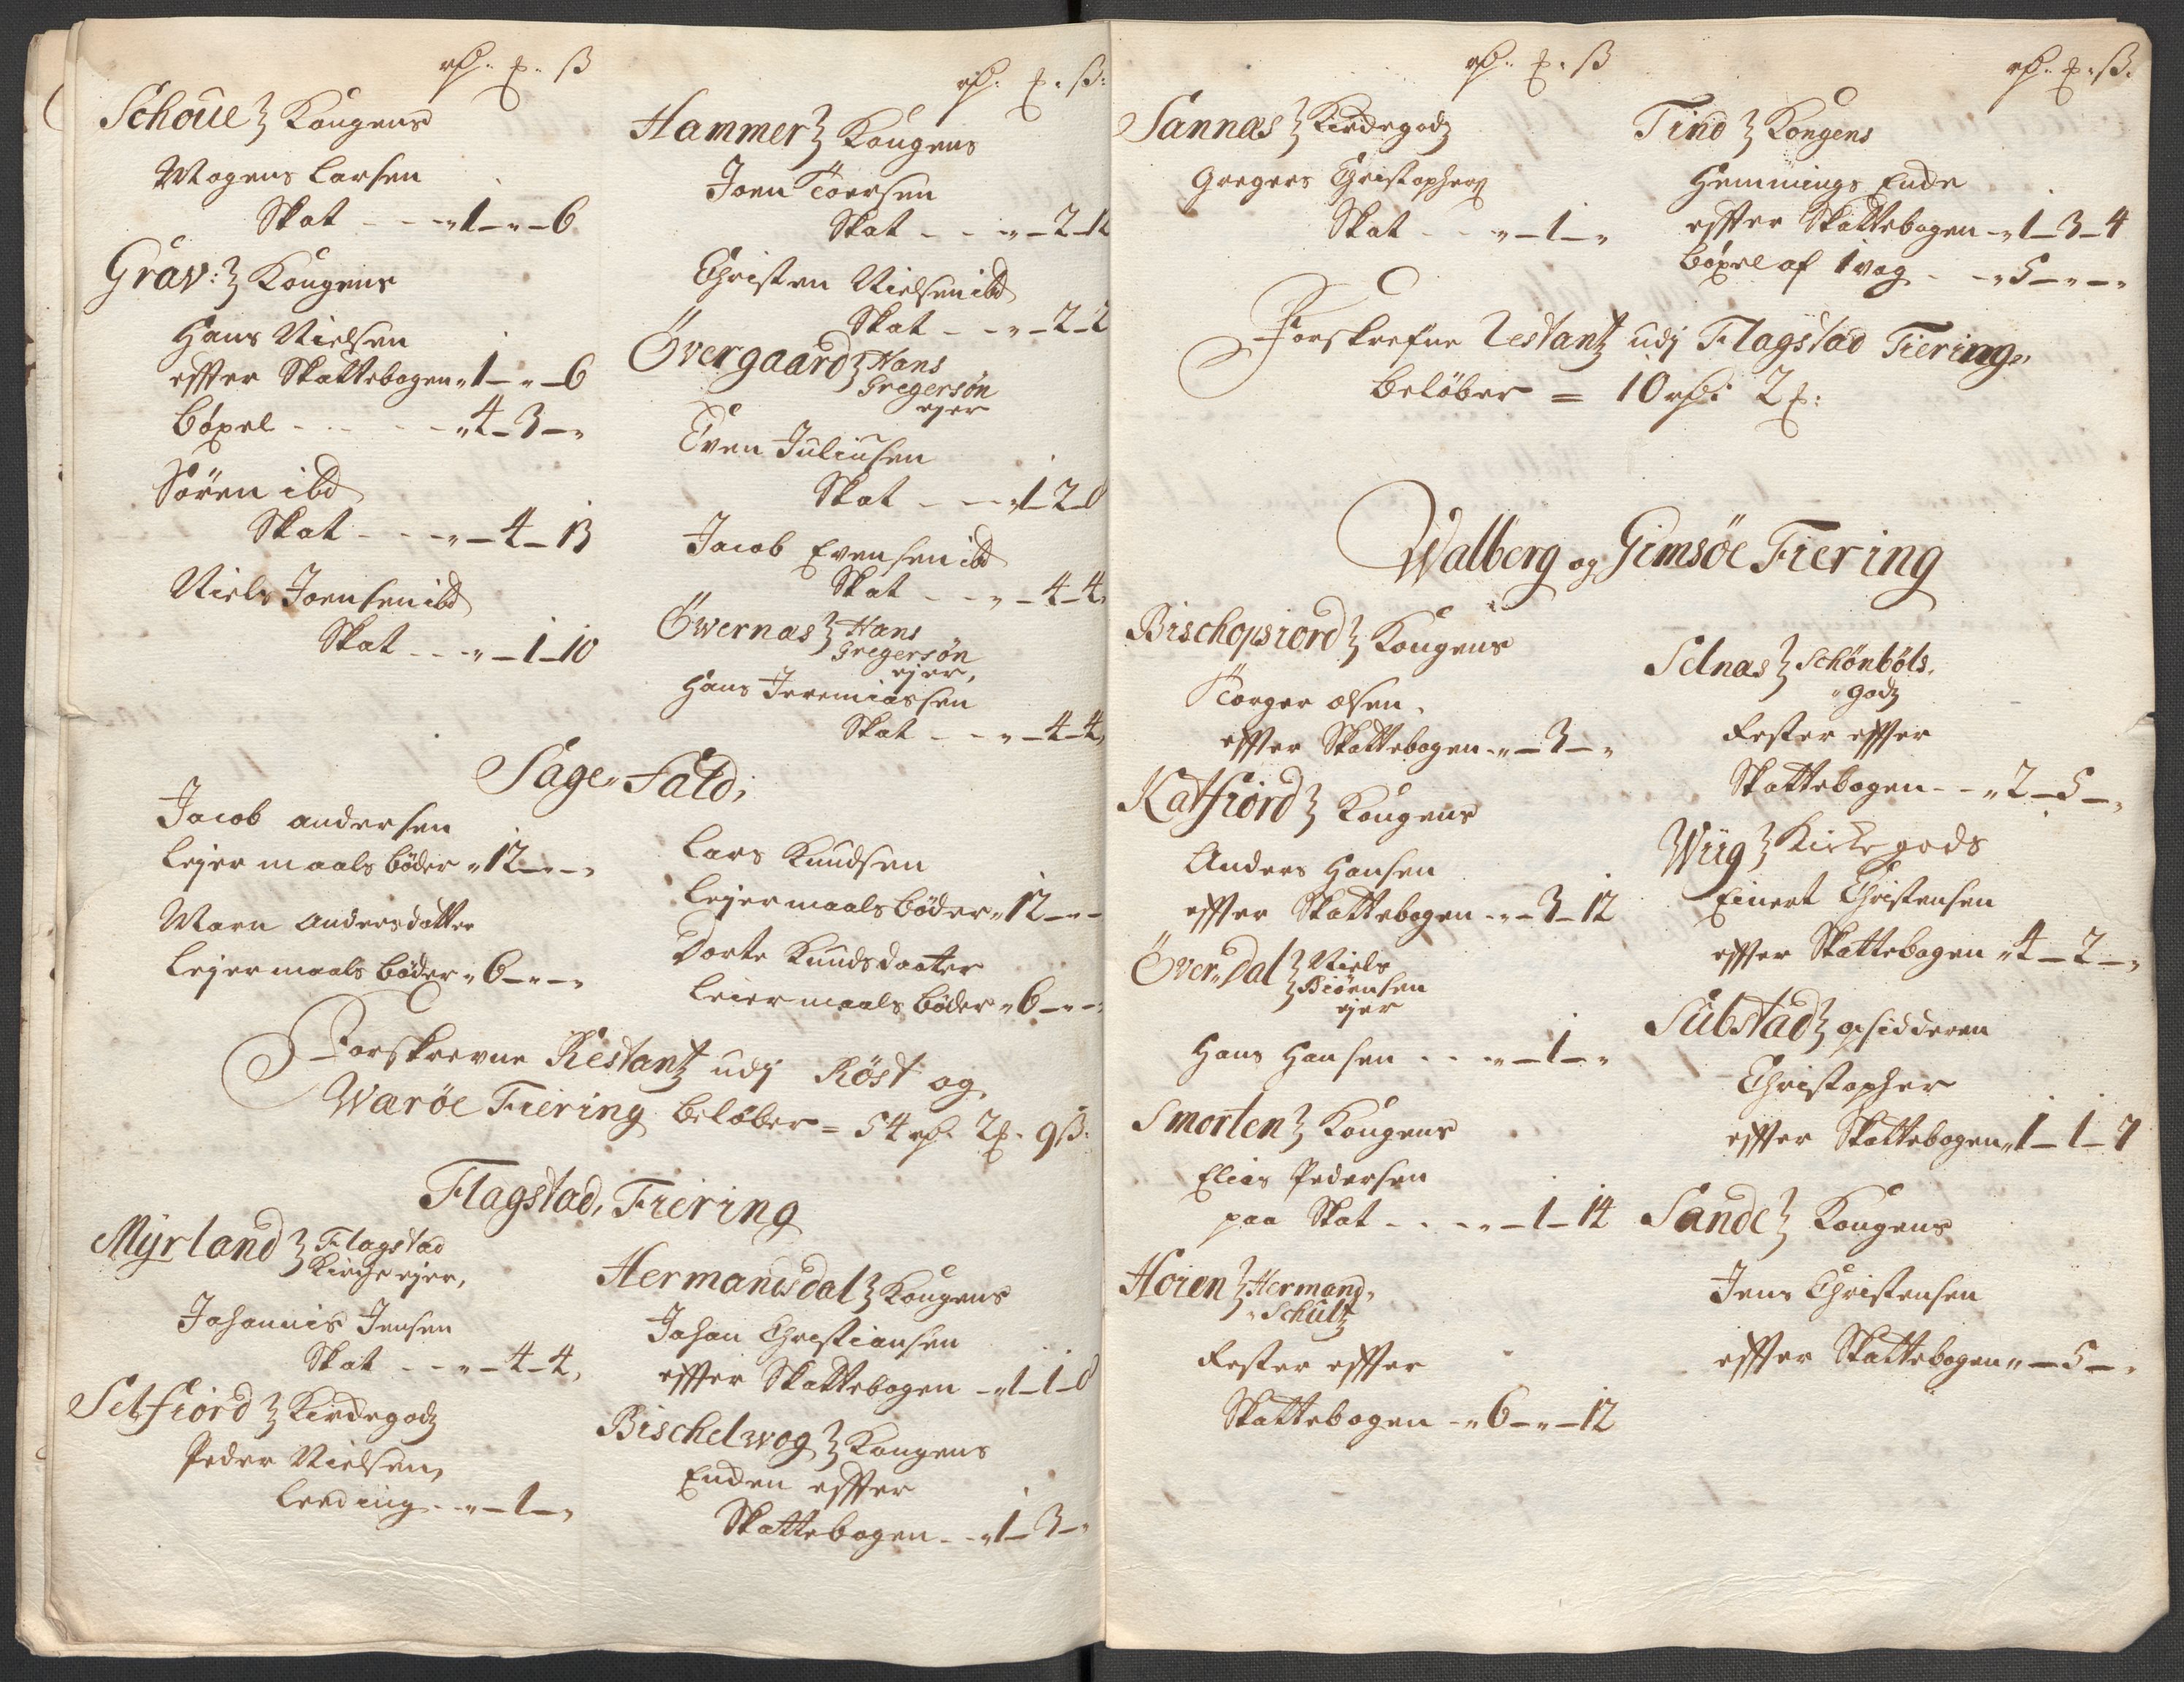 rd. ₻. ß
Schoue } Kongens
Mogens Larsen
Skat - - - „1 - „ - 6
Grav: } Kongens
Hans Nielsen
effter Skattebogen „1 - „ - 6
Böxel - - - - - „4 - 3 - „
Sören ibd
Skat - - - „ - 4 - 13
Niels Joensen ibd
Skat - - - „ - 1 - 10
rd. ₻. ß:
Hammer } Kongens
Joen Toersen
Skat - - - „ - 2 - 12
Christen Nielsen ibd
Skat - - „ - 2 - 2
Övergaard } Hans
Gregersøn
ejer
Even Juliusen
Skat - - - „1 - 2 - 8
Jacob Evensen ibd
Skat - - „ - 4 - 4
Övernas } Hans
Gregersøn
ejer,
Hans Jeremiassen
Skat - - „ - 4 - 4
Sage-Fald,
Jacob Andersen
Lejermaals böder „12 - „ - „
Maren Andersdatter
Lejermaals böder „6 - „ - „
Lars Knudsen
Lejermaals böder „12 - „ -
Dorte Knudsdaater
Leiermaals böder „6 - „ - „
Forskrevne Restantz udj Röst og
Waröe Fiering Belöber = 54 rd. 2 ₻. 9 ß:
Flagstad, Fiering
Myrland } Flagstad
Kirche ejer,
Johannis Jensen
Skat - - - „ - 4 - 4,
Selfiord } Kirchegodz
Peder Nielsen,
Leeding - - „ - 1 - „
Hermandsdal } Kongens
Johan Christiansen
effter Skattebogen - „1 - 1 - 8
Bischelwog } Kongens
Enden effter
Skattebogen - - „1 - 3 - „
rd. ₻. ß
Sannas } Kirchegodz
Gregers Christophers
Skat - - - „ - 1 - „
rd. ₻. ß.
Tind } Kongens
Hemmings Enke
effter Skattebogen - „1 - 3 - 4
Böxel af 1 vog - - „5 - „ - „
Forskrefne Restantz udj Flagstad Fiering,
Belöber = 10 rd: 2 ₻:
Walberg og Gimsöe Fiering
Bischopsiord } Kongens
Torger Olsen.
effter Skattebogen - „ - 3 - „
Katfiord } Kongens
Anders Hansen
effter Skattebogen - „ - 3 - 12
Över-Dal } Niels
Biörnsen
ejer
Hans Hansen - - - „ - 1 - „
Smorten } Kongens
Elias Pedersen
paa Skat - - - „ - 1 - 14
Hoien } Hermand,
Schultz
Rester effter
Skattebogen - „6 - „ - 12
Selnas } Schönböls.
godz
Rester effter
Skattebogen - - „2 - 5 - „
Wiig } Kirke gods
Einert Christensen
effter Skattebogen „4 - 2 - „
Substad } opsidderen
Christopher
effter Skattebogen „1 - 1 - 7
Sande } Kongens
Jens Christensen
effter Skattebogen „ - 5 - „